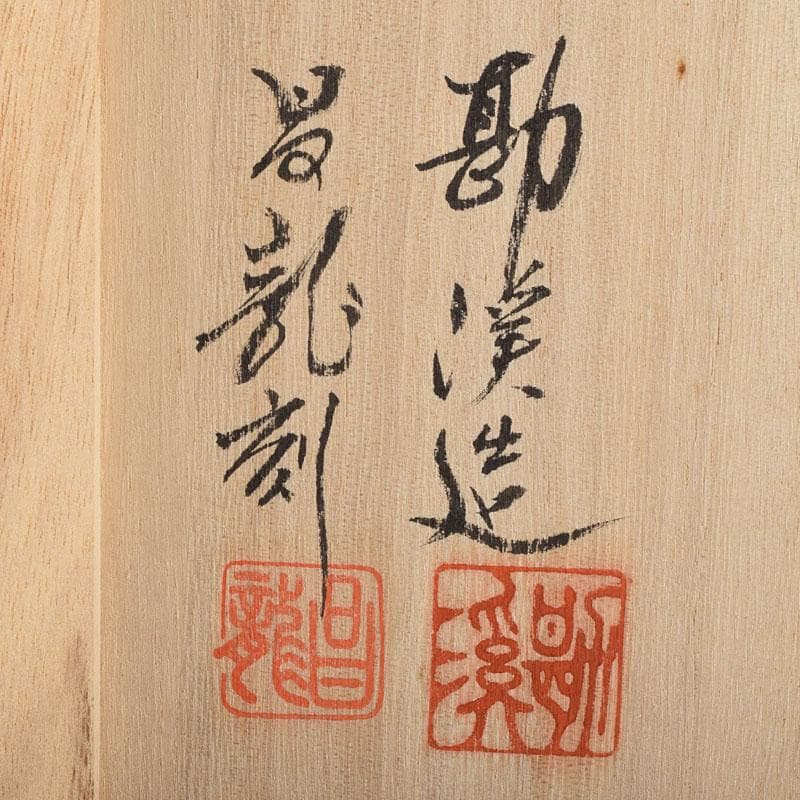 勘渓造
勘溪
昌龍刻
昌龍